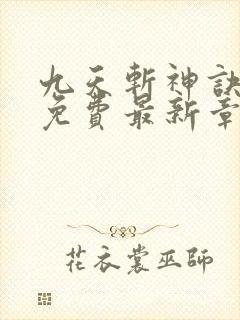 九天斬神訣
免費最新章
花衣裳巫師